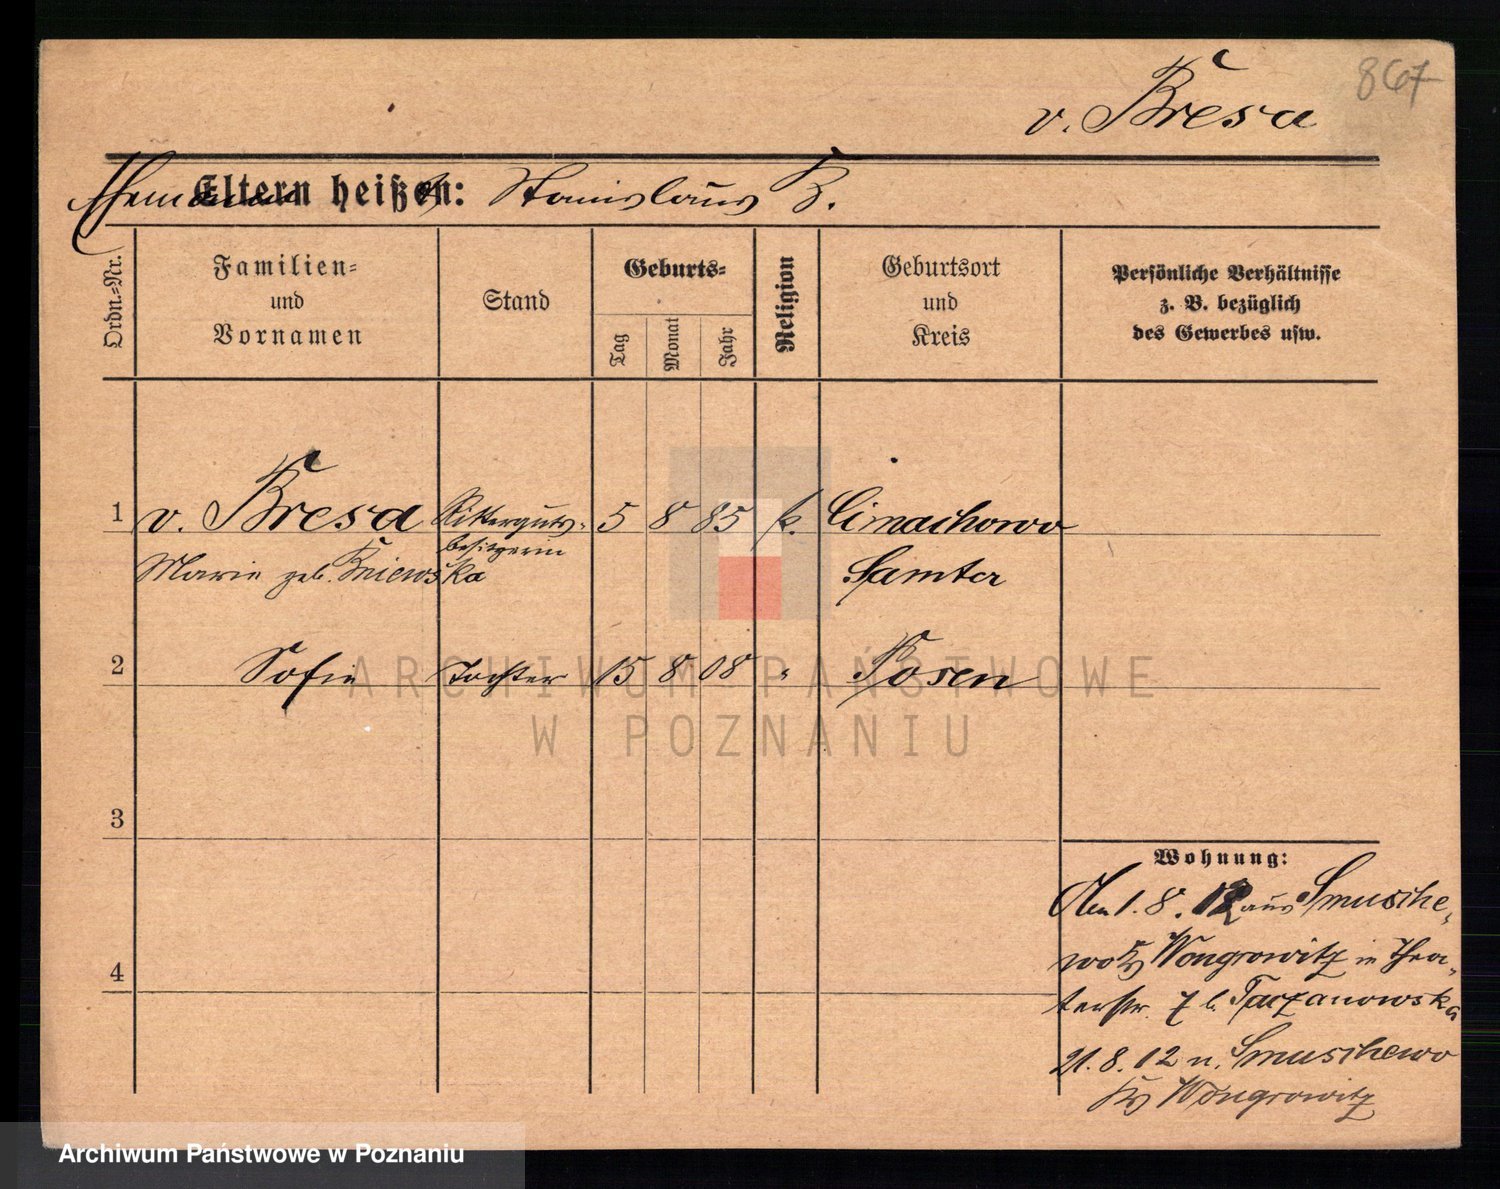 867
v. Bresa
Eltern heißen: Stanislaus B.
Ordn.-Nr.
Familien-
und
Vornamen
Stand
Geburts-
Tag
Monat
Jahr
Religion
Geburtsort
und
Kreis
Persönliche Verhältnisse
z. B. bezüglich
des Gewerbes usw.
1 v. Bresa Ritterguts- 5 8 85 k. Cimachowo
besitzerin
Marie geb. Kniewska Samter
2 Sofie Tochter 15 8 08 " Posen
3
4
Wohnung:
1. 8. 12 aus Smusche-
wo Ks Wongrowitz in Thea-
terstr. 7 b. Taczanowska
21. 8. 12 n. Smuschewo
Ks Wongrowitz
ARCHIWUM PAŃSTWOWE
W POZNANIU
Archiwum Państwowe w Poznaniu